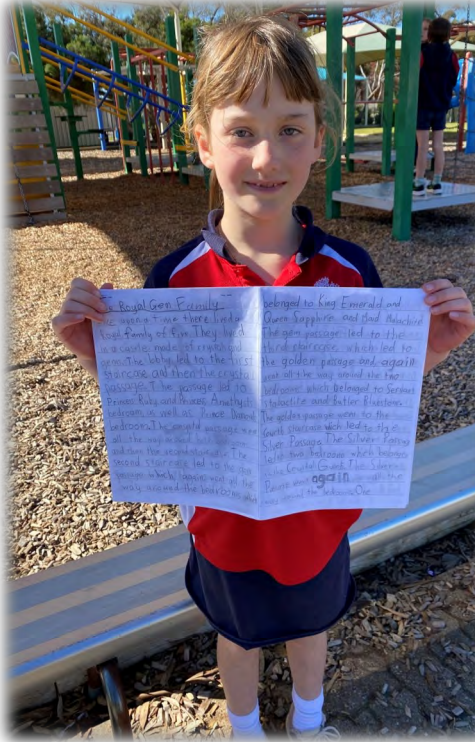 Royal Gem Family
upon a time there lived a
Royal family of five. They lived
in a castle made of crystals and
gems. The lobby led to the first
staircase and then the crystal
passage. The passage led to
Prince Ruby and Princess Amethyst's
bedrooms as well as Prince Diamond
bedroom. The crystal passage
all the way around
and then the second
second staircase led to the gem
passage which looped all the
way around the bedrooms which
belonged to King Emerald and
Queen Sapphire and Maid Malachite.
The gem passage led to the
third staircase which led to
the golden passage and again
went all the way around the two
bedrooms which belonged to Servant
Stalactite and Butler Bluestone.
The golden passage went to the
fourth staircase which led to the
Silver Passage. The Silver Passage
two bedroom which belonged
Crystal Guard. The Silver
again
way around the bedrooms. One